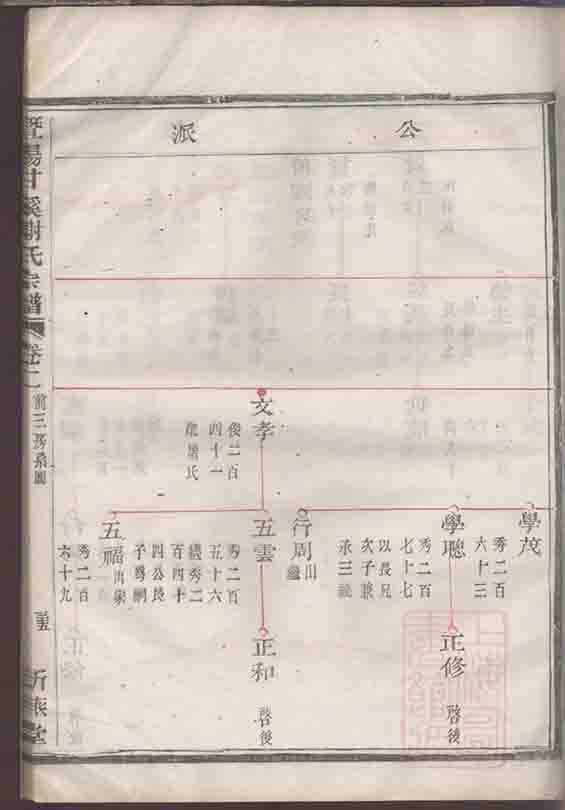 公派
學茂
秀二百
六十三
學聰
秀二百
七十七
以長兄
次子兼
承三
正修
啓後
行周
出繼
文孝
俊二百
四十一
屠氏
五雲
秀二百
五十六
繼秀二
百四十
四公長
子爲嗣
正和
啓後
五福
出家
秀二百
六十九
暨陽甘溪謝氏宗譜
卷二
前三房系圖